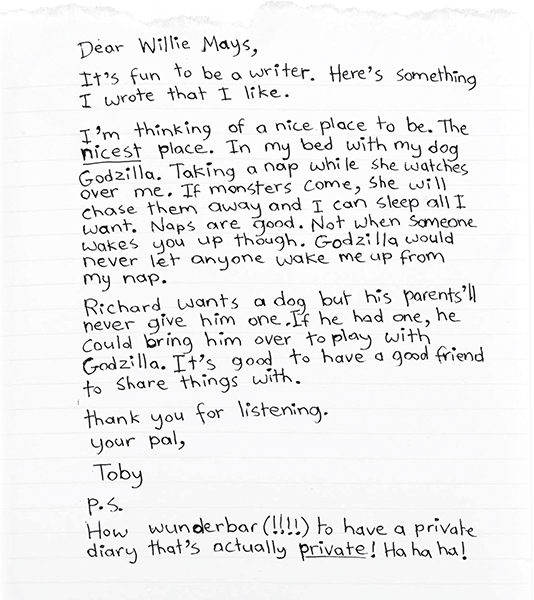 Dear Willie Mays,
It's fun to be a writer. Here's something
I wrote that I like.
I'm thinking of a nice place to be. The
nicest place. In my bed with my dog
Godzilla. Taking a nap while she watches
over me. If monsters come, she will
chase them away and I can sleep all I
want. Naps are good. Not when someone
wakes you up though. Godzilla would
never let anyone wake me up from
my nap.
Richard wants a dog but his parents'll
never give him one. If he had one, he
could bring him over to play with
Godzilla. It's good to have a good friend
to share things with.
thank you for listening.
your pal,
Toby
P.S.
How wunderbar (!!!!) to have a private
diary that's actually private! Ha ha ha!